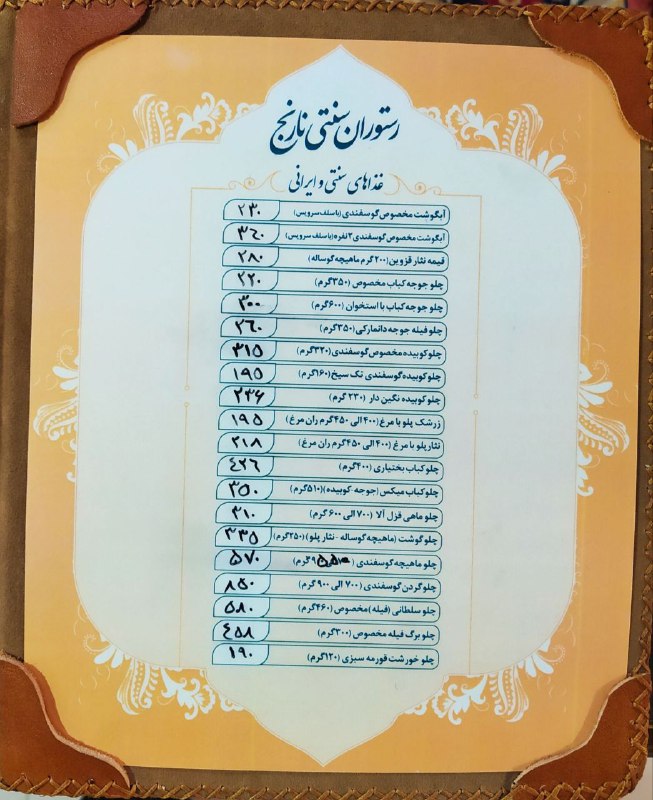 رستوران سنتی نارنج
غذاهای سنتی و ایرانی
آبگوشت مخصوص گوسفندی (با سلف سرویس) ۲۳۰
آبگوشت مخصوص گوسفندی ۲ نفره (با سلف سرویس) ۳۶۰
قیمه نثار قزوین (۲۰۰ گرم ماهیچه گوساله) ۲۸۰
چلو جوجه کباب مخصوص (۳۵۰ گرم) ۲۲۰
چلو جوجه کباب با استخوان (۶۰۰ گرم) ۳۰۰
چلو فیله جوجه دانمارکی (۳۵۰ گرم) ۲۶۰
چلو کوبیده مخصوص گوسفندی (۳۲۰ گرم) ۳۱۵
چلو کوبیده گوسفندی تک سیخ (۱۶۰ گرم) ۱۹۵
چلو کوبیده نگین دار (۲۳۰ گرم) ۲۳۶
زرشک پلو با مرغ (۴۰۰ الی ۴۵۰ گرم ران مرغ) ۱۹۵
نثار پلو با مرغ (۴۰۰ الی ۴۵۰ گرم ران مرغ) ۲۱۸
چلو کباب بختیاری (۴۰۰ گرم) ۴۲۶
چلو کباب میکس (جوجه کوبیده) (۵۱۰ گرم) ۳۵۰
چلو ماهی قزل آلا (۷۰۰ الی ۶۰۰ گرم) ۳۱۰
چلو گوشت (ماهیچه گوساله - نثار پلو) (۲۵۰ گرم) ۳۳۵
چلو ماهیچه گوسفندی ( گرم) ۵۷۰
چلو گردن گوسفندی (۷۰۰ الی ۹۰۰ گرم) ۸۵۰
چلو سلطانی (فیله) مخصوص (۴۶۰ گرم) ۵۸۰
چلو برگ فیله مخصوص (۳۰۰ گرم) ۴۵۸
چلو خورشت قورمه سبزی (۱۲۰ گرم) ۱۹۰